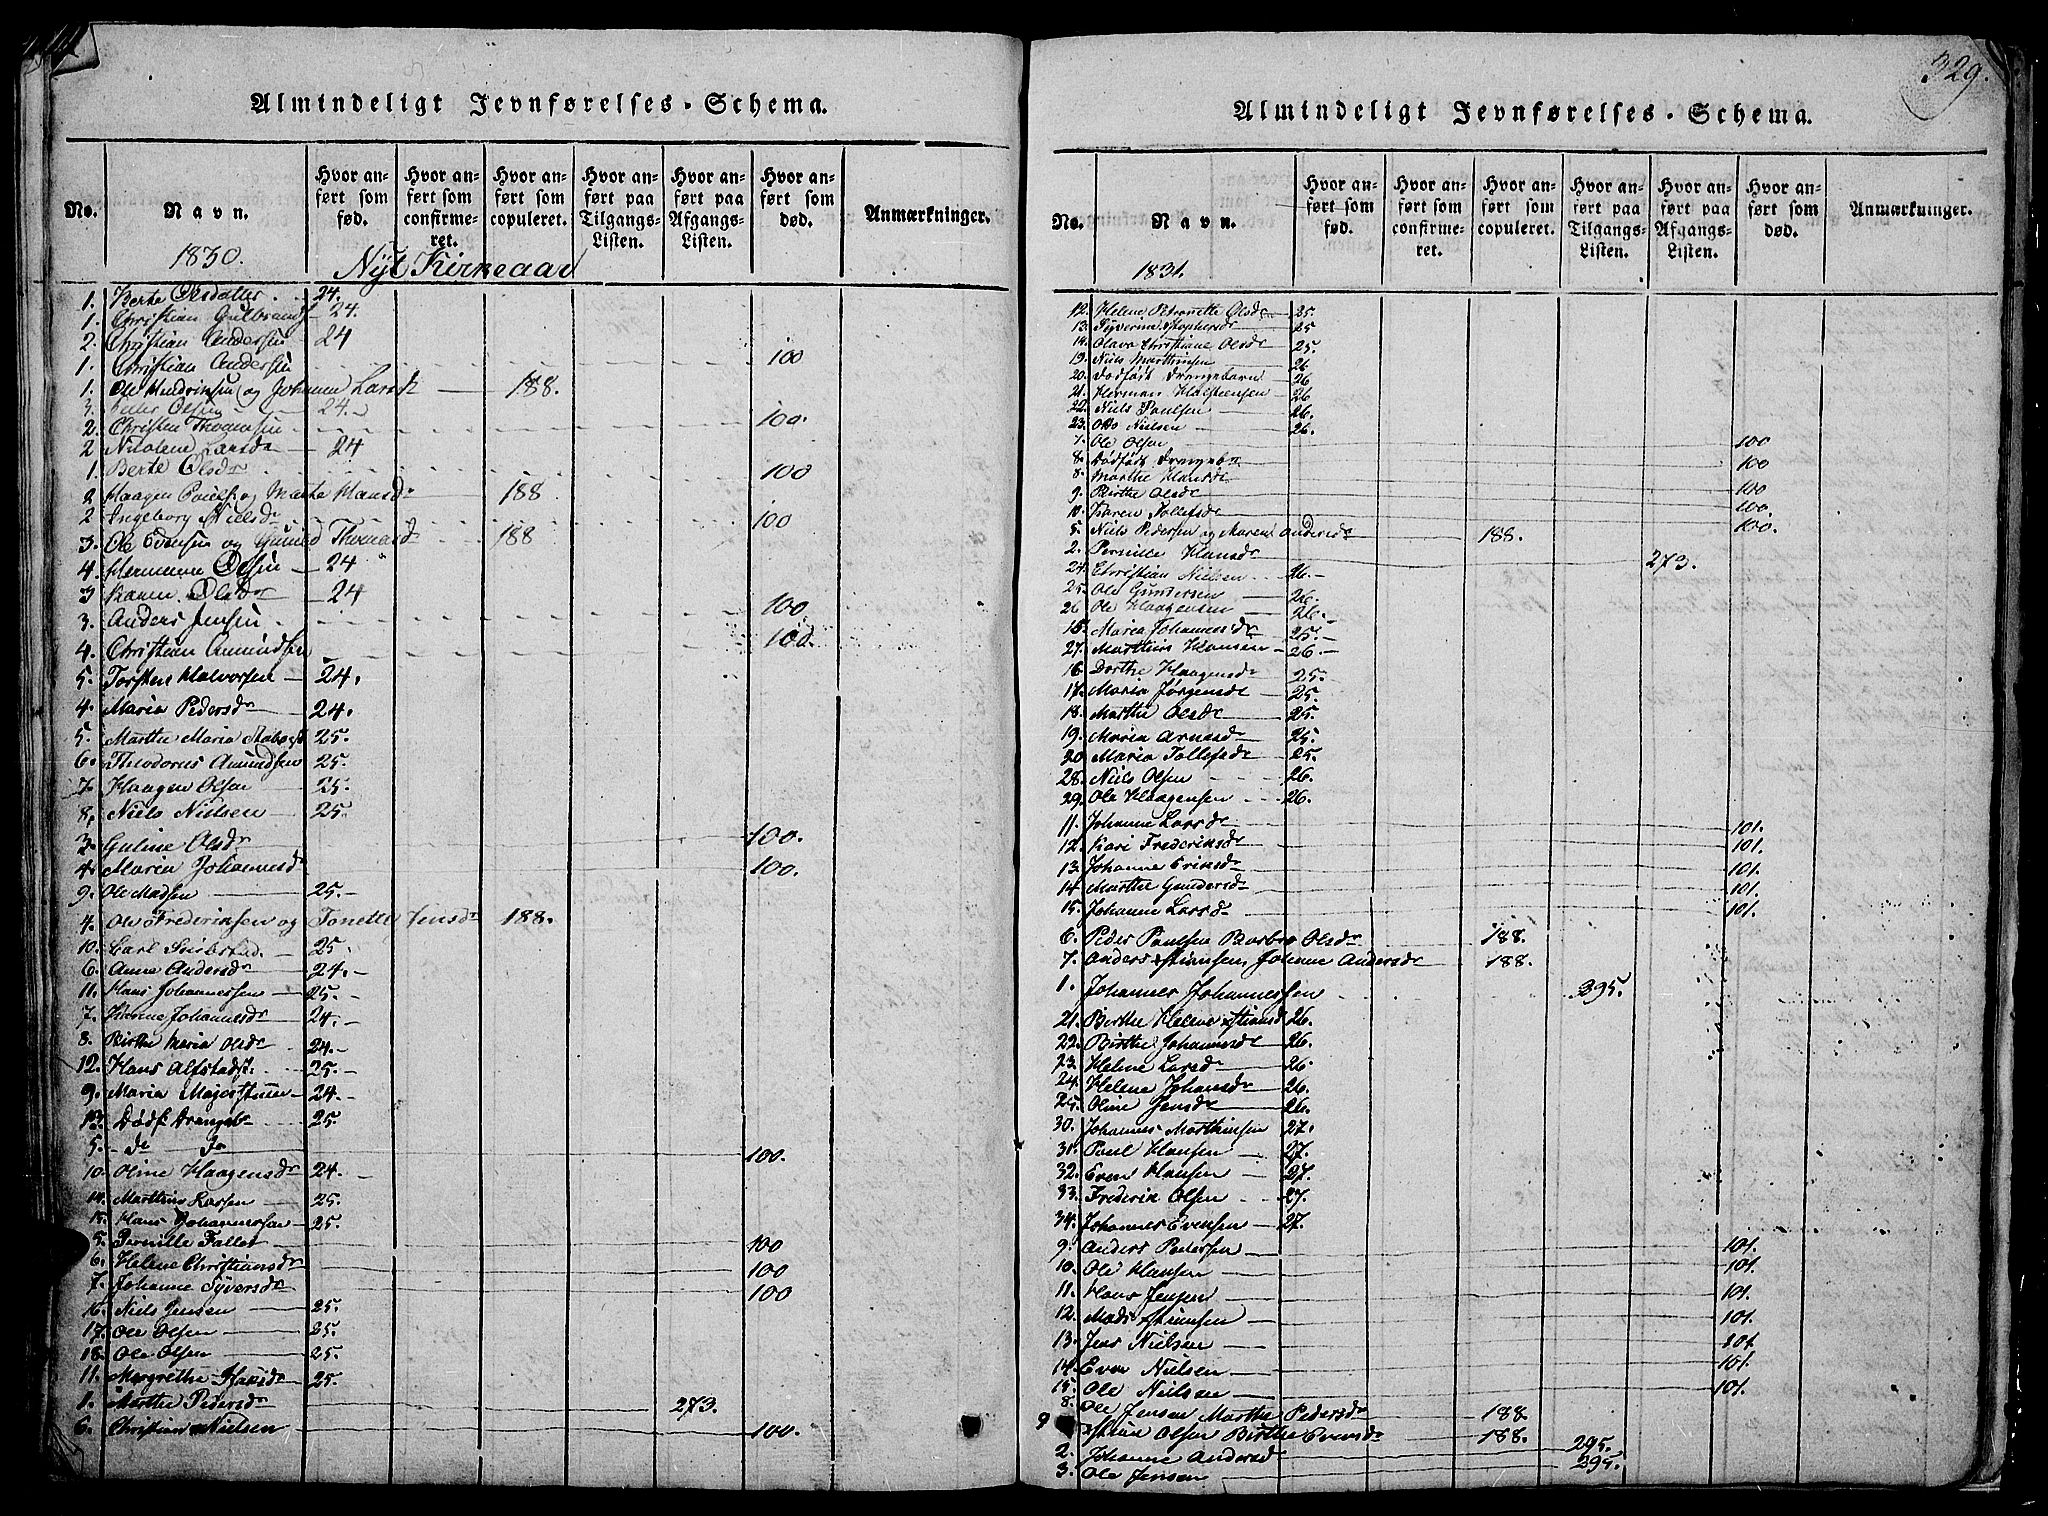 Almindeligt Jevnførelses-Schema.
No. Navn. Hvor anført som fød. Hvor anført som confirmeret. Hvor anført som copuleret. Hvor anført paa Tilgangs-Listen. Hvor anført paa Afgangs-Listen. Hvor anført som død. Anmærkninger.
1830. Nyt Kirkeaar
1. Berte Olsdatter. 24.
1. Christian Gulbrands 24.
2. Christian Andersen 24
1. Christian Andersen 100
1. Ole Hendriksen og Johanne Larsd 188.
3. Peter Olsen 24.
2. Christen Thomesen 100.
2 Nicoline Larsdr 24
1. Berte Olsdr 100
2 Haagen Pouls. og Marte Hansdr 188
2 Ingeborg Nielsdr 100
3. Ole Evensen og Gunild Thomasd 188
4. Hermann Olsen 24
3 Karen Olsdr 24
3. Anders Jensen 100
4. Christian Amundsen 100.
5. Torsten Halvorsen 24.
4. Maria Pedersdr 24.
5. Marthe Maria 25.
6. Theodorus Amundsen 25.
7. Haagen Olsen 25.
8. Niels Nielsen 25.
3. Guline Olsdr 100.
4. Maria Johannesd 100.
9. Ole Madsen 25.
4. Ole Frederiksen og Tonette Jensdr 188.
10. Carl 25.
6. Anne Andersdr 24.
11. Hans Johannessen 25.
7. Karine Johannesdr 24.
8. Birthe Maria Olsdr 24.
12. Hans Alfstadst. 25.
9. Maria Majorstuen 24.
13. Dødf. Drengeb. 25.
5. do do 100.
10. Oline Haagensdr 24.
14. Marthin Larsen 25.
15. Hans Johannessen 25.
5. Pernille Falles 100
6. Helene Christiansdr 100
7. Johanne Syversdr 100
16. Niels Jensen 25.
17. Ole Olsen 25.
18. Ole Olsen 25.
11. Margrethe Hansdr 25.
1. Marthe Pedersdr 273.
6. Christian Nielsen 100.
329.
Almindeligt Jevnførelses-Schema.
No. Navn. Hvor anført som fød. Hvor anført som confirmeret. Hvor anført som copuleret. Hvor anført paa Tilgangs-Listen. Hvor anført paa Afgangs-Listen. Hvor anført som død. Anmærkninger.
1831.
12. Helene Petronette Olsdr 25.
13. Syverine Xstophersdr 25
14. Olava Christiane Olsdr 25.
19. Niels Marthinsen 26
20. Dødfødt Drengebarn 26
21. Herman Halsteensen 26
22. Niels Paulsen 26.
23. Otto Nielsen 26.
7. Ole Olsen 100
8. Dødfødt Drengebn 100
8. Marthe Hansdr
9. Birthe Olsdr 100
10. Karen Tollefsdr 100.
5. Niels Pedersen og Maren Andersdr 188. 100.
2. Pernille Hansdr 273.
24. Christian Nielsen 26.
25. Ole Gundersen 26.
26 Ole Haagensen 26.
15. Maria Johannesdr 25.
27. Marthin Hansen 26.
16. Dorthe Haagensdr 25.
17. Maria Jørgensdr 25.
18. Marthe Olsdr 25.
19. Maria Arnesdr 25.
20 Maria Tollefsdr 25.
28. Niels Olsen 26.
29. Ole Haagensen 26.
11. Johanne Larsdr 101.
12. Kari Frederiksdr 101.
13. Johanne Eriksdr 101.
14 Marthe Gundersdr 101.
15. Johanne Larsdr 101.
6. Peder Paulsen Barbro Olsdr 188.
7. Anders Xstiansen, Johanne Andersdr 188.
1. Johannes Johannessen 295.
21. Berthe Helene Xstiansd 26.
22. Birthe Johannesdr 26.
23 Helene Larsdr 26
24. Helene Johansdr 26.
25. Oline Jensdr 26.
30. Johannes Marthinsen 27.
31. Paul Hansen 27.
32. Even Hansen 27.
33. Frederik Olsen 27.
34. Johannes Evensen 27.
9. Anders Pedersen 101.
10. Ole Hansen 101.
11. Hans Jensen 101.
12. Mads Xstiansen 101.
13. Jens Nielsen 101.
14. Even Nielsen 101.
15. Ole Nielsen 101.
8. Ole Jensen Marthe Pedersdr 188.
9 Xstian Olsen Birthe Evensdr 188.
2. Johanne Andersd 295.
3. Ole Jensen 295.